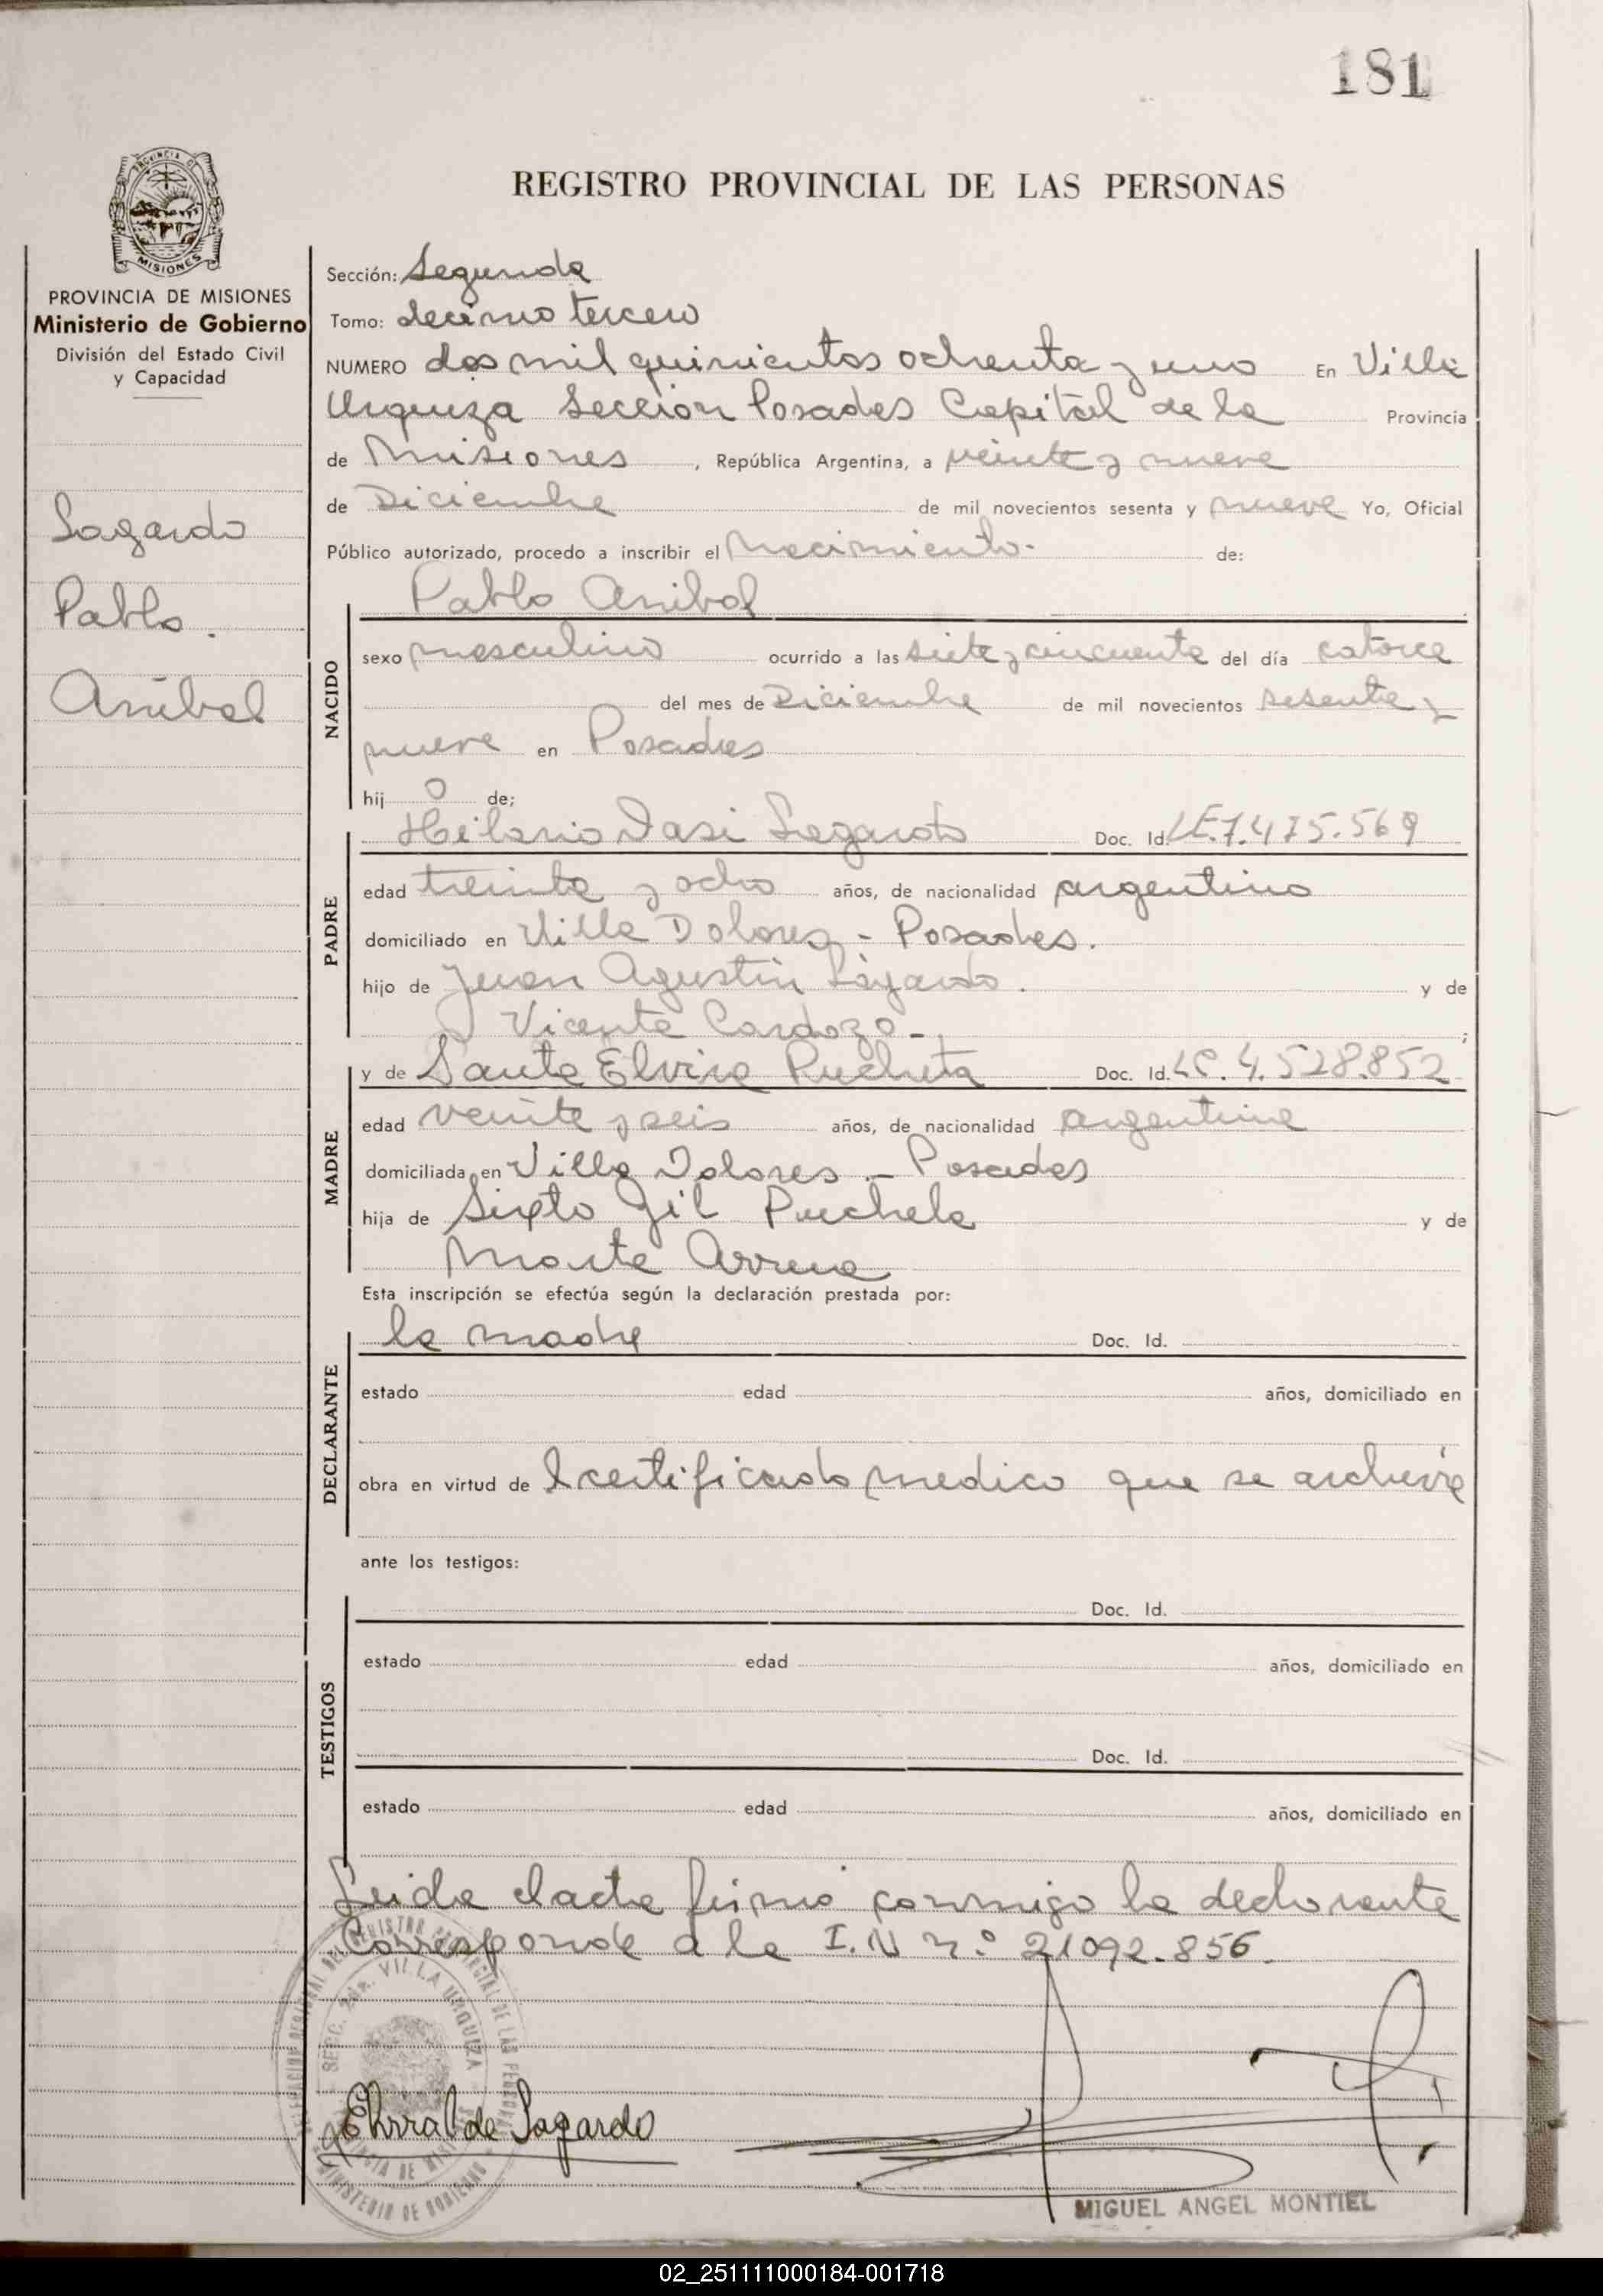 181
PROVINCIA DE
MISIONES
PROVINCIA DE MISIONES
Ministerio de Gobierno
División del Estado Civil
y Capacidad
Sagardo
Pablo.
Anibal
REGISTRO PROVINCIAL DE LAS PERSONAS
Sección: Segunda
Tomo: decimo tercero
NUMERO dos mil quinientos ochenta y uno En Villa
Urquiza Seccion Posadas Capital de la Provincia
de Misiones, República Argentina, a veinte y nueve
de Diciembre de mil novecientos sesenta y nueve Yo, Oficial
Público autorizado, procedo a inscribir el Nacimiento.- de:
Pablo Anibal
NACIDO
sexo masculino ocurrido a las siete y cincuenta del día catorce
del mes de Diciembre de mil novecientos sesenta y
nueve en Posadas
hij o de;
Hilario Sagardo Doc. Id. LE.7.475.569
PADRE
edad treinta y ocho años, de nacionalidad argentino
domiciliado en Villa Dolores - Posadas.
hijo de Juan Agustin Sagardo. y de
Vicenta Cardozo-;
y de Santa Elvira Pucheta Doc. Id. LC.4.528.852
MADRE
edad veinte y seis años, de nacionalidad argentina
domiciliada en Villa Dolores - Posadas
hija de Sixto Gil Pucheta y de
Arrua
Esta inscripción se efectúa según la declaración prestada por:
la madre Doc. Id.
DECLARANTE
estado edad años, domiciliado en
obra en virtud de l certificado medico que se archiva
ante los testigos:
Doc. Id.
TESTIGOS
estado edad años, domiciliado en
Doc. Id.
estado edad años, domiciliado en
Leida el acta firmó conmigo la declarante
Corresponde a la I.N n.º 21092.856.
SECC. 2da. VILLA URQUIZA
MINISTERIO DE GOBIERNO
de Sagardo
MIGUEL ANGEL MONTIEL
02_251111000184-001718